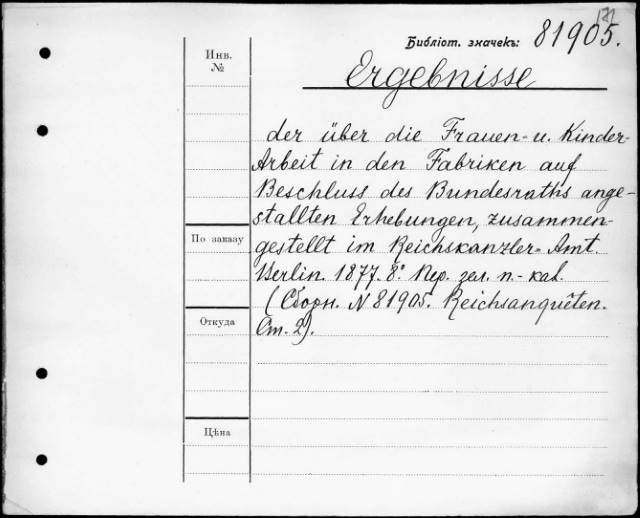 Библіот. значекъ: 81905.
Инв. №
Ergebnisse
der über die Frauen- u. Kinder-
Arbeit in den Fabriken auf
Beschluss des Bundesraths ange-
stallten Erhebungen, zusammen-
По заказу
gestellt im Reichskanzler-Amt.
Berlin. 1877. 8°. Пер. зел. п- кал.
(Сборн. N 81905. Reichsanquêten.
Откуда
Ст. 2).
Цѣна